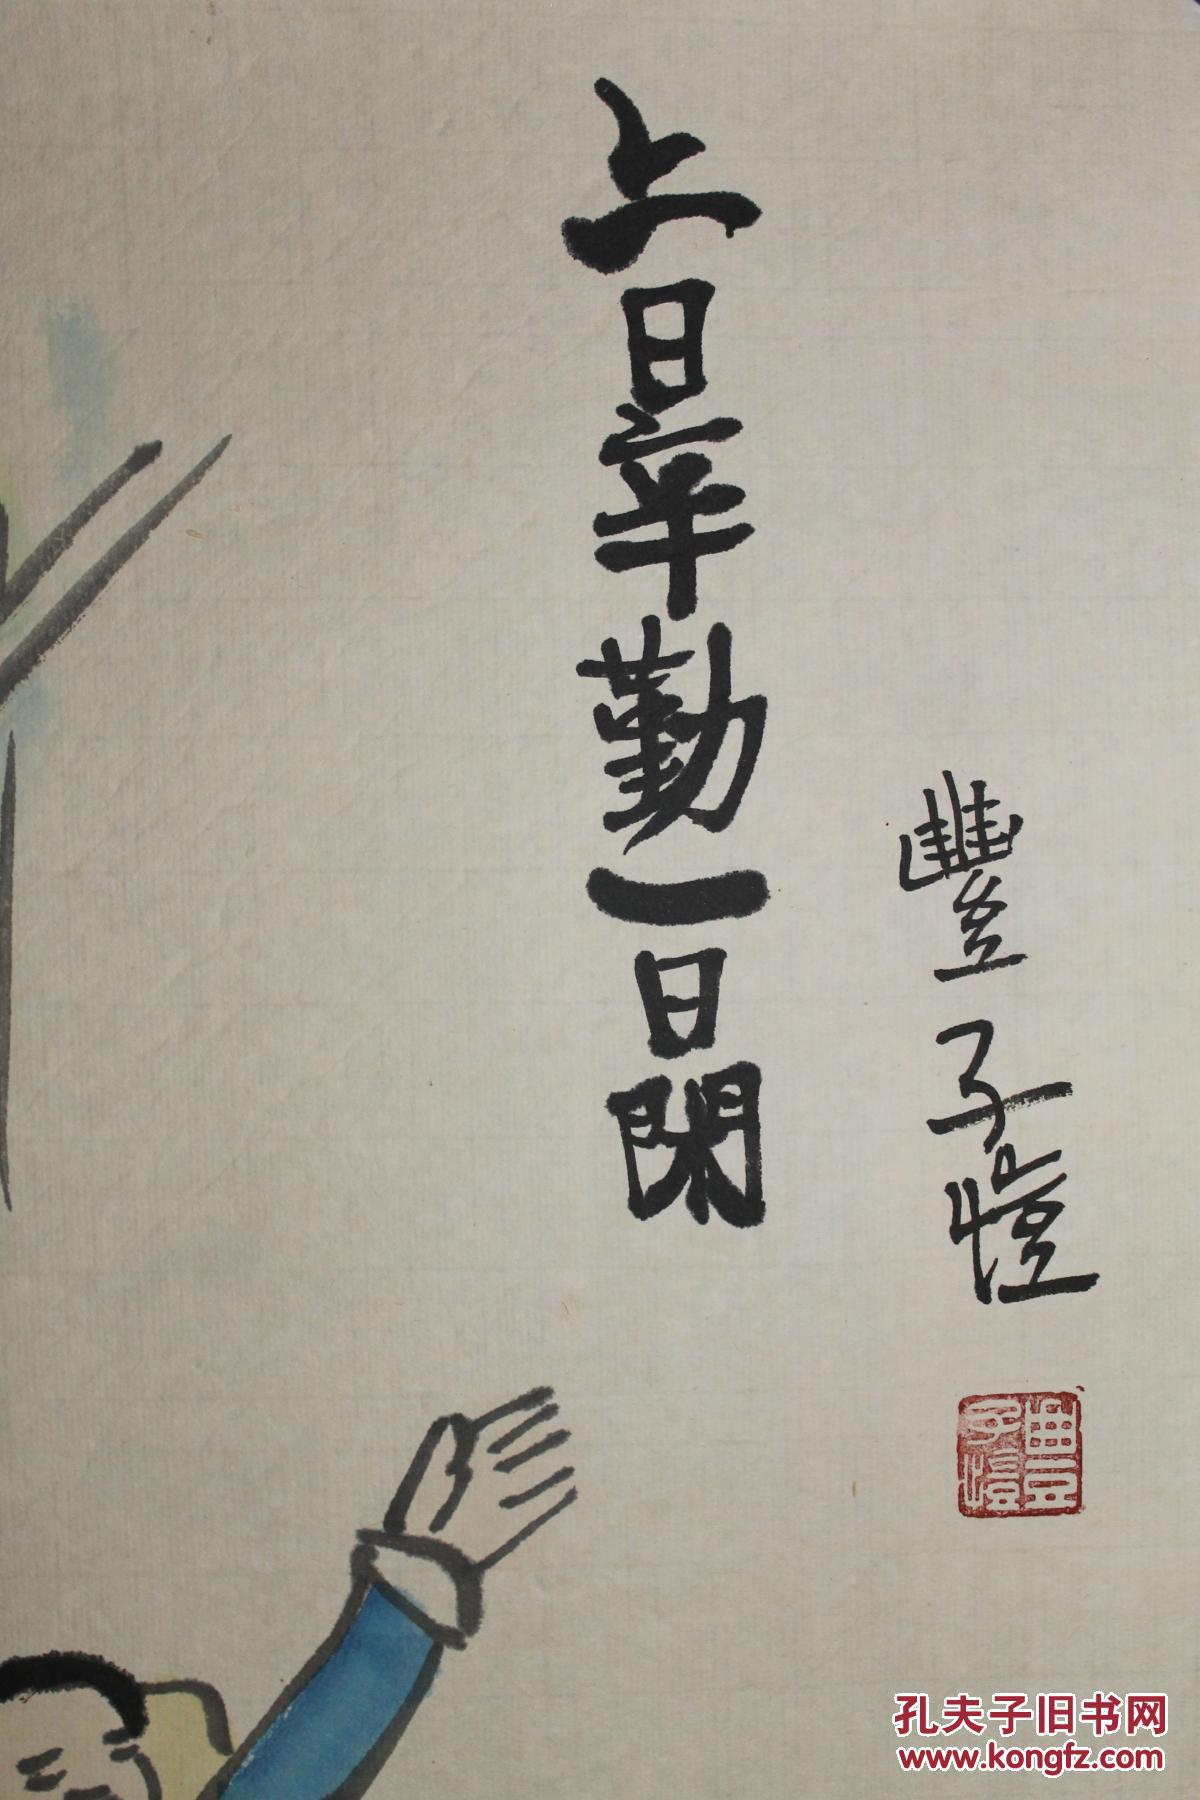 豐子愷
六日辛勤一日閑
豐子愷
孔夫子旧书网
www.kongfz.com